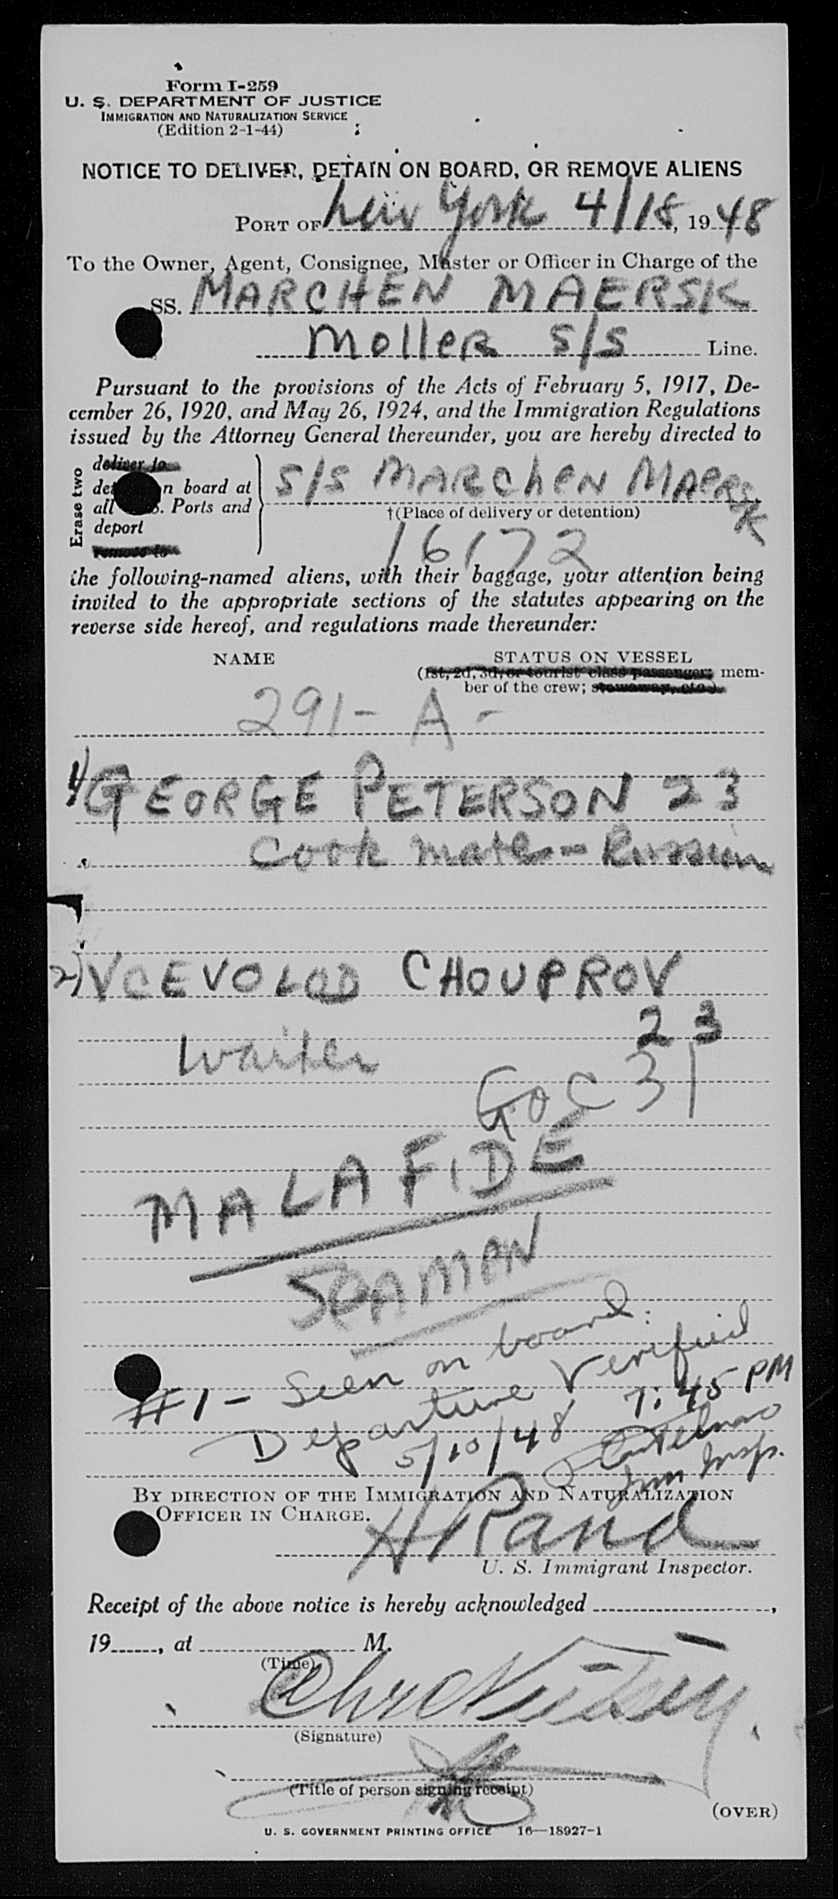 Form I-259
U. S. DEPARTMENT OF JUSTICE
IMMIGRATION AND NATURALIZATION SERVICE
(Edition 2-1-44)
NOTICE TO DELIVER, DETAIN ON BOARD, OR REMOVE ALIENS
PORT OF New York 4/18, 1948
To the Owner, Agent, Consignee, Master or Officer in Charge of the
SS. MARCHEN MAERSK
Moller S/S Line.
Pursuant to the provisions of the Acts of February 5, 1917, De-
cember 26, 1920, and May 26, 1924, and the Immigration Regulations
issued by the Attorney General thereunder, you are hereby directed to
Erase two
deliver to
n board at
all . Ports and
deport
remove to
S/S MARCHEN MAERSK
†(Place of delivery or detention)
16172
the following-named aliens, with their baggage, your attention being
invited to the appropriate sections of the statutes appearing on the
reverse side hereof, and regulations made thereunder:
NAME STATUS ON VESSEL
(1st, 2d, 3d, or tourist class passenger; mem-
ber of the crew; stowaway, etc.)
291-A-
1) GEORGE PETERSON 23
Cook mate - Russian
2) VCEVOLOD CHOUPROV
23
Waiter
GOC 31
MALAFIDE
SEAMEN
#1 - Seen on board.
Departure Verified
5/10/48 7:45 PM
Imm Insp.
BY DIRECTION OF THE IMMIGRATION AND NATURALIZATION
OFFICER IN CHARGE.
H Rand
U. S. Immigrant Inspector.
Receipt of the above notice is hereby acknowledged ,
19 , at M.
(Time)
(Signature)
(Title of person signing receipt)
(OVER)
U. S. GOVERNMENT PRINTING OFFICE 16—18927-1